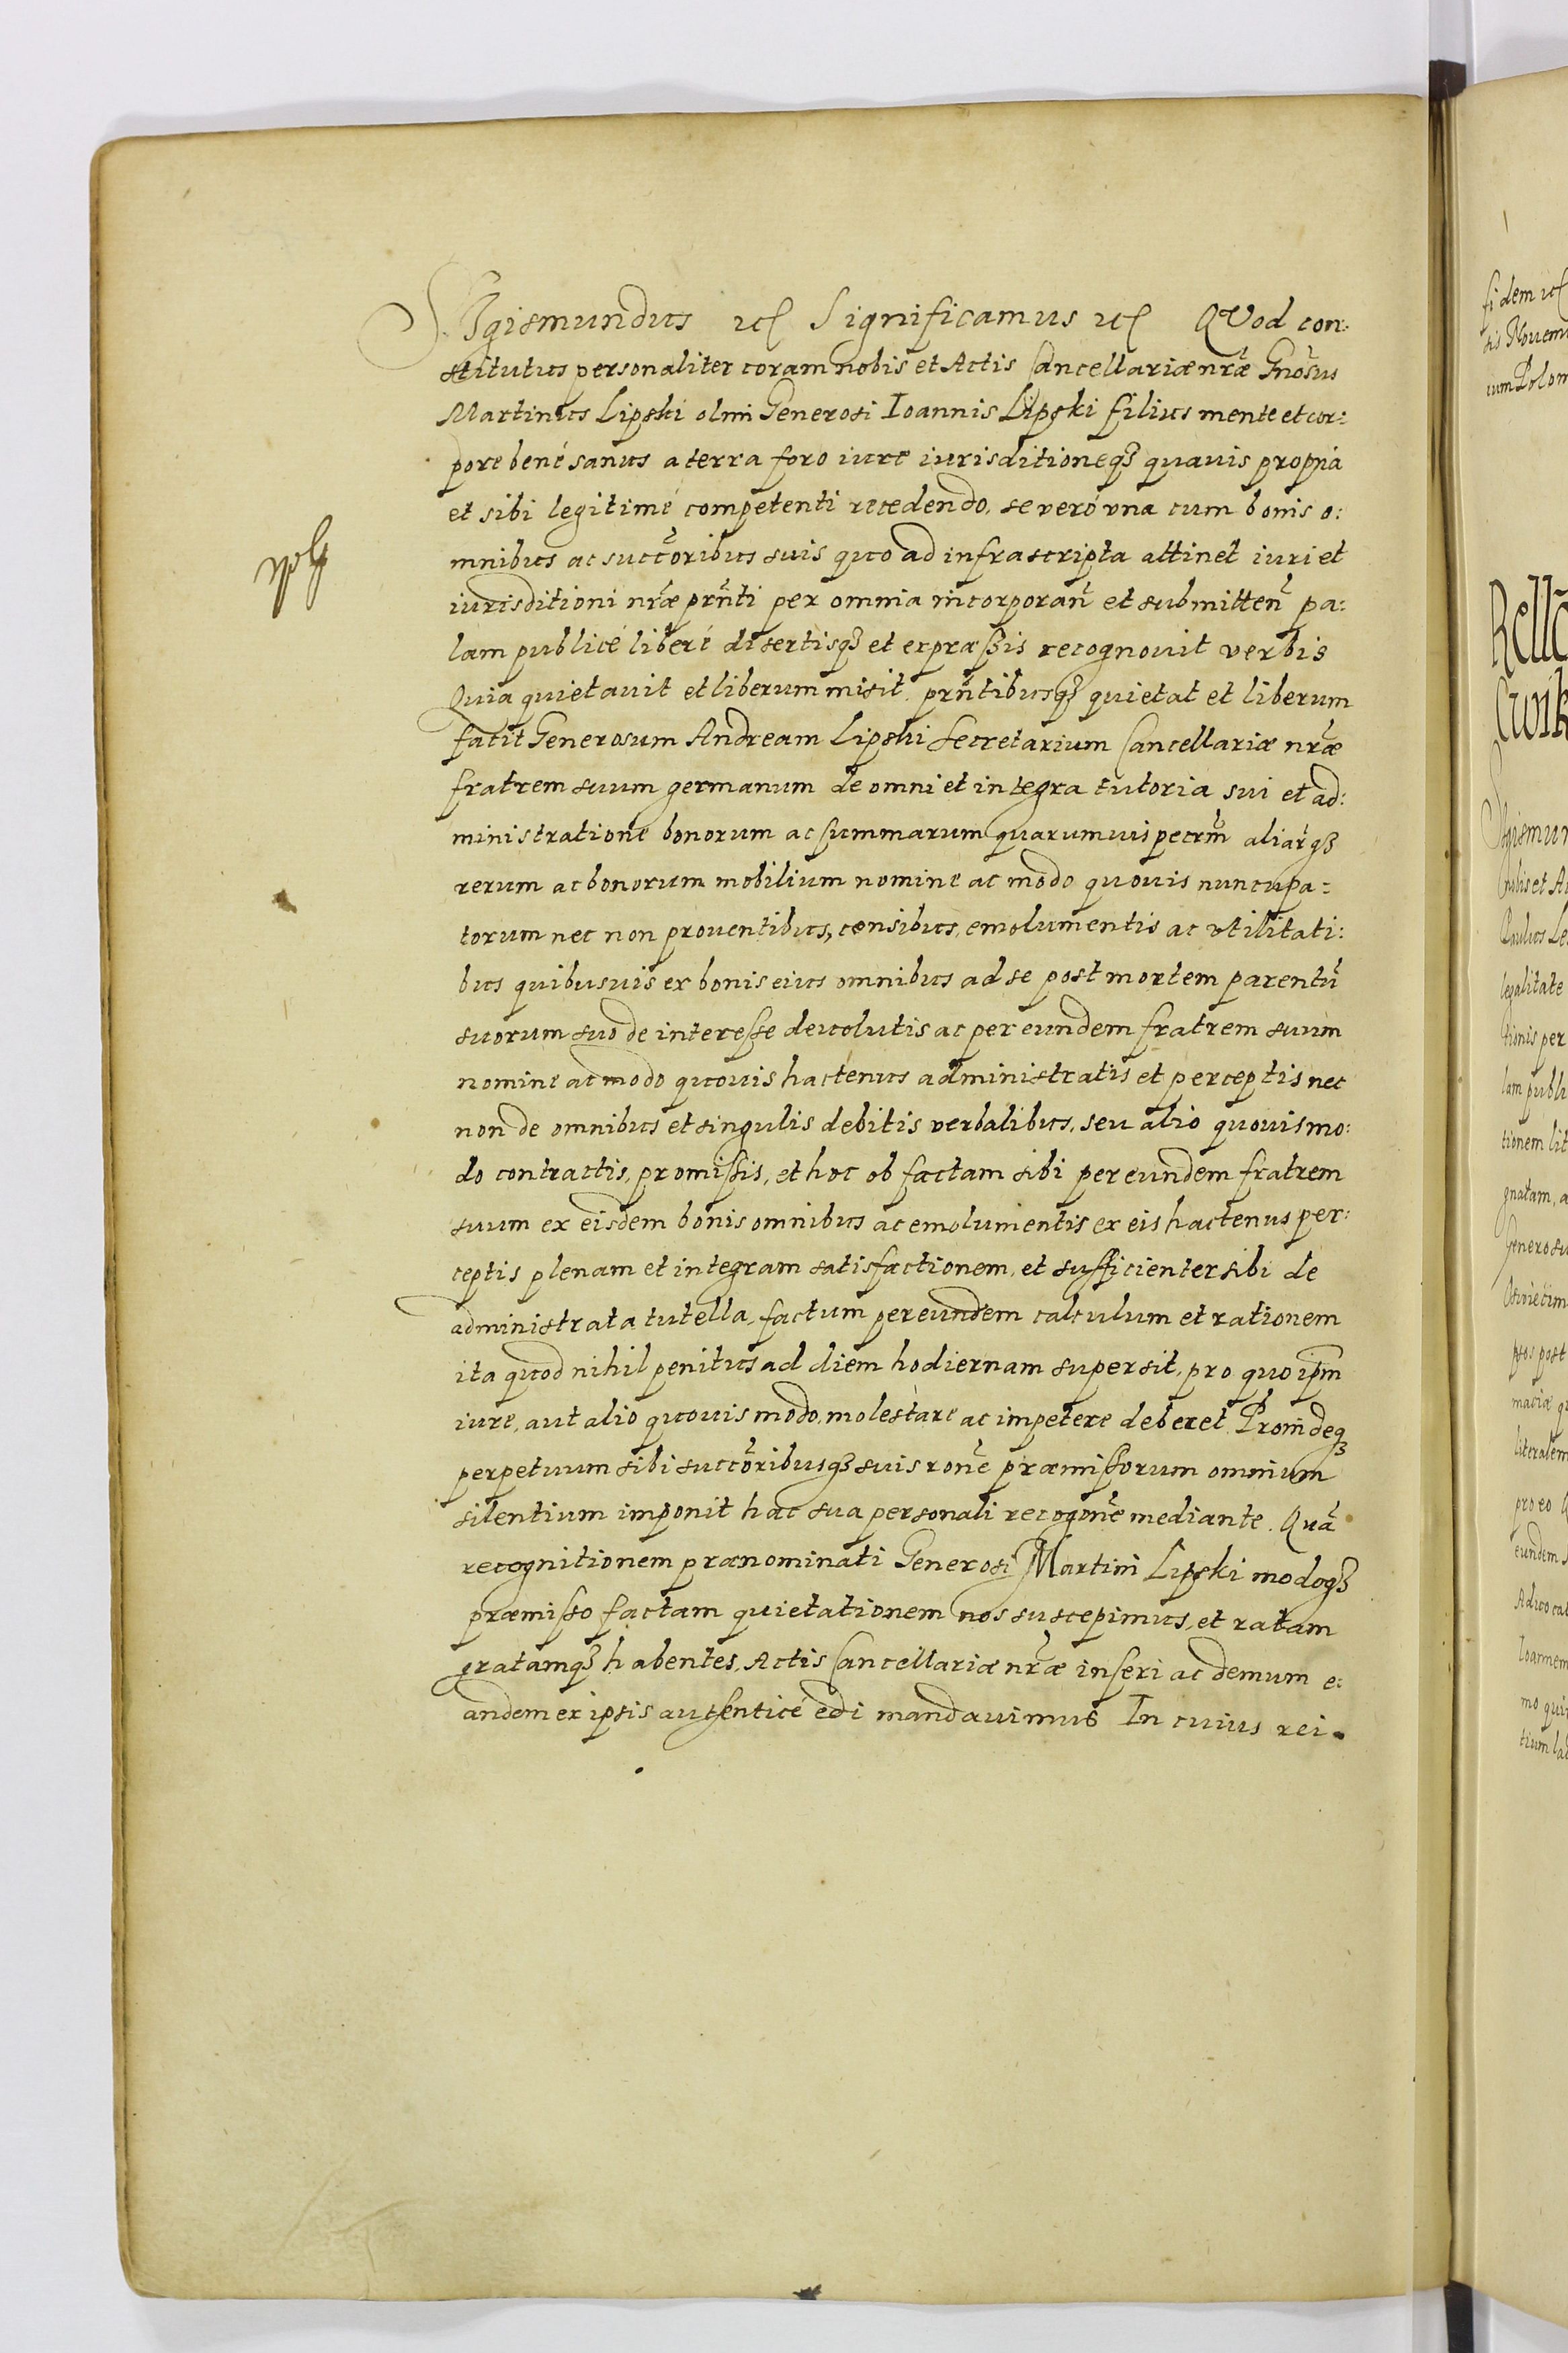 SIgismundus etc Significamus etc QVod con:
stitutus personaliter coram nobis et Actis Cancellariæ nr̃æ Gnõsus
Martinus Lipski olim Generosi Ioannis Lipski filius mente et cor:
pore bené sanus a terra foro iure iurisditioneqꝫ quauis propria
et sibi legitimé competenti recedendo, se veró vna cum bonis o:
mnibus ac succõribus suis quo ad infrascripta attinet iuri et
iurisditioni nr̃æ prñti per omnia incorporañ et submitteñ pa:
lam publicé liberé disertisqꝫ et expræßis recognouit verbis
Quia quietauit et liberum misit, prñtibusqꝫ quietat et liberum
facit Generosum Andream Lipski Secretarium Cancellariæ nr̃æ
fratrem suum germanum de omni et integra tutoria sui et ad:
ministratione bonorum ac summarum quarumuis pecrm̃ aliar̃qꝫ
rerum ac bonorum mobilium nomine ac modo quouis nuncupa:
torum nec non prouentibus, censibus, emolumentis ac vtilitati:
bus quibusuis ex bonis eius omnibus ad se post mortem parentũ
suorum suo de interesse deuolutis ac per eundem fratrem suum
nomine ac modo quouis hactenus administratis et perceptis nec
non de omnibus et singulis debitis verbalibus, seu alio quouis mo:
do contractis, promißis, et hoc ob factam sibi per eundem fratrem
suum ex eisdem bonis omnibus ac emolumentis ex eis hactenus per:
ceptis plenam et integram satisfactionem, et sufficienter sibi de
administrata tutella, factum per eundem calculum et rationem
ita quod nihil penitus ad diem hodiernam supersit, pro quo ipm̃
iure, aut alio quouis modo, molestare ac impetere deberet. Proindeqꝫ
perpetuum sibi succõribusqꝫ suis ronẽ præmißorum omnium
silentium imponit hac sua personali recogonẽ mediante. Quã
recognitionem prænominati Generosi Martini Lipski modoqꝫ
præmißo factam quietationem nos suscepimus, et ratam
gratamqꝫ habentes, Actis Cancellariæ nr̃æ inseri ac demum e:
andem ex ipsis autenticé edi mandauimus In cuius rei
fidem etc
sis Nouem
ium Polon
Rellã
Cwik
Sigismun
nobis et A
Paulus Le
legalitate
tionis per
lam publi
tionem lit
gnatam, a
Generosu
post
literalem
pro eo
eundem
Aduocat
Ioannem
mo qui